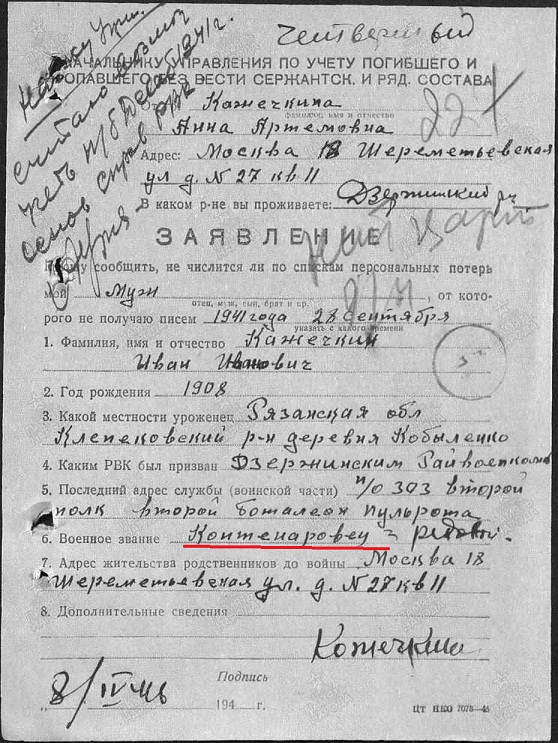 Четвертый
НАЧАЛЬНИКУ УПРАВЛЕНИЯ ПО УЧЕТУ ПОГИБШЕГО И
ПРОПАВШЕГО БЕЗ ВЕСТИ СЕРЖАНТСК. И РЯД. СОСТАВА
Кажечкина
фамилия, имя и отчество
Анна Артемовна
Адрес: Москва 18 Шереметьевская
ул д. N 27 кв 11
В каком р-не вы проживаете: Дзержинский
ЗАЯВЛЕНИЕ
Прошу сообщить, не числится ли по спискам персональных потерь
мой Муж
отец, муж, сын, брат и пр.
, от кото-
рого не получаю писем 1941 года 28 Сентября
указать с какого времени
1. Фамилия, имя и отчество Кажечкин
Иван Иванович
2. Год рождения 1908
3. Какой местности уроженец Рязанская обл
Клепековский р-н деревня Кобыленко
4. Каким РВК был призван Дзержинским Райвоенкомо
5. Последний адрес службы (воинской части) п/о 393 второй
полк второй боталеон пульрота
6. Военное звание Контенаровец = рядовой.
7. Адрес жительства родственников до войны Москва 18
Шереметьевская ул. д. N 27 кв 11
8. Дополнительные сведения
Кожечкина
Подпись
8/IV 46
194 г.
ЦТ НКО 7078-45